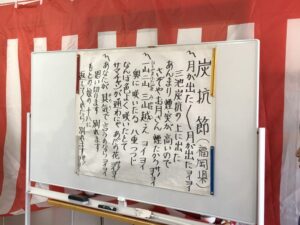 炭坑節（福岡県）
月が出た〱月が出たヨイヨイ
三池炭坑の上に出た
あんまり煙突が高いので
さぞやお月さん煙たかろサノヨイヨイ
一山二山三山越えヨイヨイ
奥に咲いたる八重つつじ
なんぼ色よく咲いたとて
サマチャンが通わにゃあだの花サノヨイヨイ
あなたがその気で云うのならヨイヨイ
思い切ります別れます
もとの娘の十八に
返してくれたら別れますサノヨイヨイ